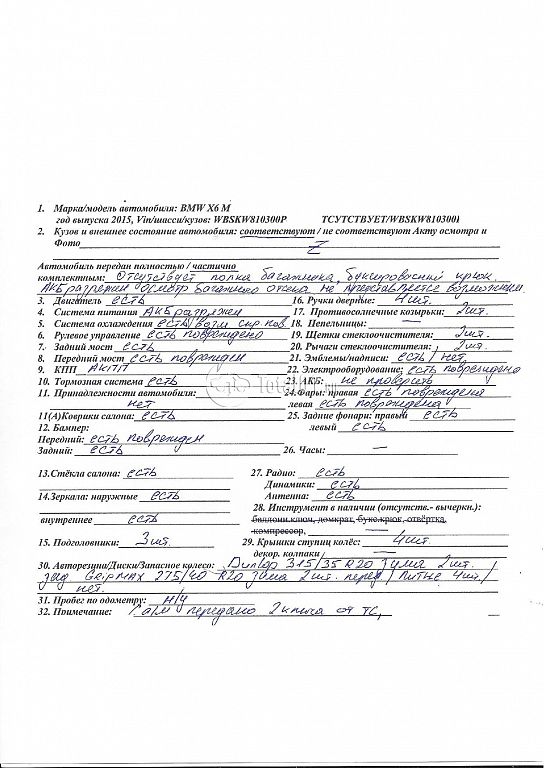 1. Марка/модель автомобиля: BMW X6 M
год выпуска 2015, Vin/шасси/кузов: WBSKW810300P ТСУТСТВУЕТ/WBSKW810300I
2. Кузов и внешнее состояние автомобиля: соответствуют / не соответствуют Акту осмотра и
Фото Z
Автомобиль передан полностью / частично
комплектным: Отсутствует полка багажника, буксировочный крюк.
АКБ разряжен осмотр багажного отсека не представляется возможным.
3. Двигатель есть 16. Ручки дверные: 4 шт.
4. Система питания АКБ разряжен 17. Противосолнечные козырьки: 2 шт.
5. Система охлаждения есть 18. Пепельницы: —
6. Рулевое управление есть повреждено 19. Щетки стеклоочистителя: 2 шт.
7. Задний мост есть 20. Рычаги стеклоочистителя: 2 шт.
8. Передний мост есть поврежден 21. Эмблемы/надписи: есть/нет
9. КПП АКПП 22. Электрооборудование: есть повреждено
10. Тормозная система есть 23. АКБ: не проверить
11. Принадлежности автомобиля: 24.Фары: правая есть повреждена
нет левая есть повреждена
11(А)Коврики салона: есть 25. Задние фонари: правый есть
12. Бампер: левый есть
Передний: есть поврежден
Задний: есть 26. Часы: —
13.Стёкла салона: есть 27. Радио: есть
Динамики: есть
14.Зеркала: наружные есть Антенна: есть
28. Инструмент в наличии (отсутств.- вычеркн.):
внутреннее есть баллони.ключ, домкрат, букс.крюк, отвёртка,
компрессор, —
15. Подголовники: 3 шт. 29. Крышки ступиц колёс: 4 шт.
декор. колпаки —
30. Авторезина/Диски/Запасное колесо: Dunlop 315/35 R20 зима 2 шт.
зад GRIPMAX 275/40 R20 зима 2 шт. перед / Литые 4 шт /
нет.
31. Пробег по одометру: н/у
32. Примечание: передано 2 ключа от ТС,